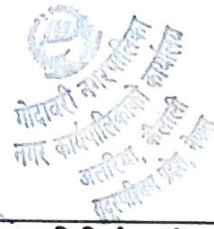 गोदावरी नगरपालिका
नगर कार्यपालिकाको कार्यालय
अत्तरिया, कैलाली
सुदूरपश्चिम प्रदेश, नेपाल